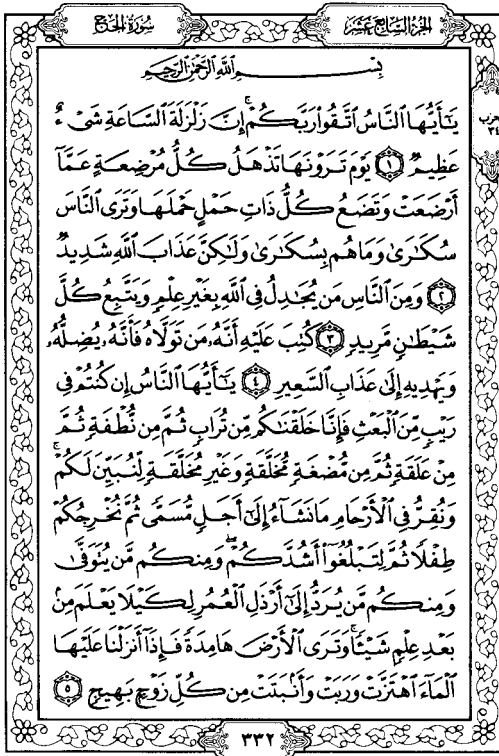 الجزء السابع عشر
سورة الحج
حزب
٣٤
بِسْمِ اللَّهِ الرَّحْمَٰنِ الرَّحِيمِ
يَٰٓأَيُّهَا النَّاسُ اتَّقُوا رَبَّكُمْ ۚ إِنَّ زَلْزَلَةَ السَّاعَةِ شَىْءٌ
عَظِيمٌ ١ يَوْمَ تَرَوْنَهَا تَذْهَلُ كُلُّ مُرْضِعَةٍ عَمَّآ
أَرْضَعَتْ وَتَضَعُ كُلُّ ذَاتِ حَمْلٍ حَمْلَهَا وَتَرَى النَّاسَ
سُكَٰرَىٰ وَمَا هُم بِسُكَٰرَىٰ وَلَٰكِنَّ عَذَابَ اللَّهِ شَدِيدٌ
٢ وَمِنَ النَّاسِ مَن يُجَٰدِلُ فِى اللَّهِ بِغَيْرِ عِلْمٍ وَيَتَّبِعُ كُلَّ
شَيْطَٰنٍ مَّرِيدٍ ٣ كُتِبَ عَلَيْهِ أَنَّهُۥ مَن تَوَلَّاهُ فَأَنَّهُۥ يُضِلُّهُۥ
وَيَهْدِيهِ إِلَىٰ عَذَابِ السَّعِيرِ ٤ يَٰٓأَيُّهَا النَّاسُ إِن كُنتُمْ فِى
رَيْبٍ مِّنَ الْبَعْثِ فَإِنَّا خَلَقْنَٰكُم مِّن تُرَابٍ ثُمَّ مِن نُّطْفَةٍ ثُمَّ
مِنْ عَلَقَةٍ ثُمَّ مِن مُّضْغَةٍ مُّخَلَّقَةٍ وَغَيْرِ مُخَلَّقَةٍ لِّنُبَيِّنَ لَكُمْ ۚ
وَنُقِرُّ فِى الْأَرْحَامِ مَا نَشَآءُ إِلَىٰٓ أَجَلٍ مُّسَمًّى ثُمَّ نُخْرِجُكُمْ
طِفْلًا ثُمَّ لِتَبْلُغُوٓا أَشُدَّكُمْ ۖ وَمِنكُم مَّن يُتَوَفَّىٰ
وَمِنكُم مَّن يُرَدُّ إِلَىٰٓ أَرْذَلِ الْعُمُرِ لِكَيْلَا يَعْلَمَ مِنۢ
بَعْدِ عِلْمٍ شَيْـًٔا ۚ وَتَرَى الْأَرْضَ هَامِدَةً فَإِذَآ أَنزَلْنَا عَلَيْهَا
الْمَآءَ اهْتَزَّتْ وَرَبَتْ وَأَنۢبَتَتْ مِن كُلِّ زَوْجٍۭ بَهِيجٍ ٥
٣٣٢